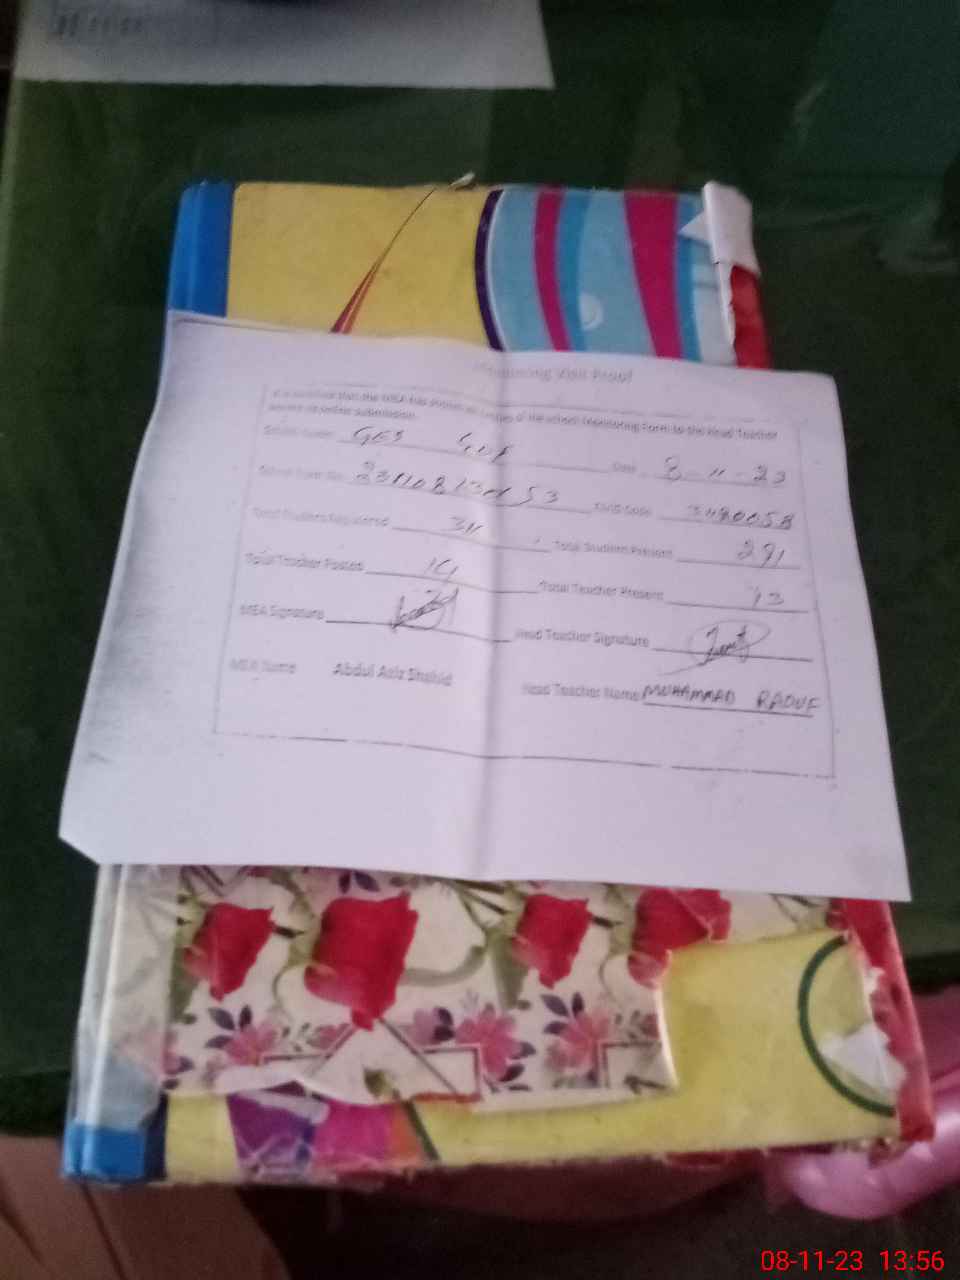 Monitoring Visit Proof
It is certified that the MEA has shown all entries of the school Monitoring Form to the Head Teacher
before its online submission.
School Name GES Date 8-11-23
EMIS Code
Total Student Registered 311 Total Student Present 291
Total Teacher Posted 14 Total Teacher Present 13
MEA Signature Head Teacher Signature
MEA Name Abdul Aziz Shahid Head Teacher Name MUHAMMAD RAOUF
08-11-23 13:56